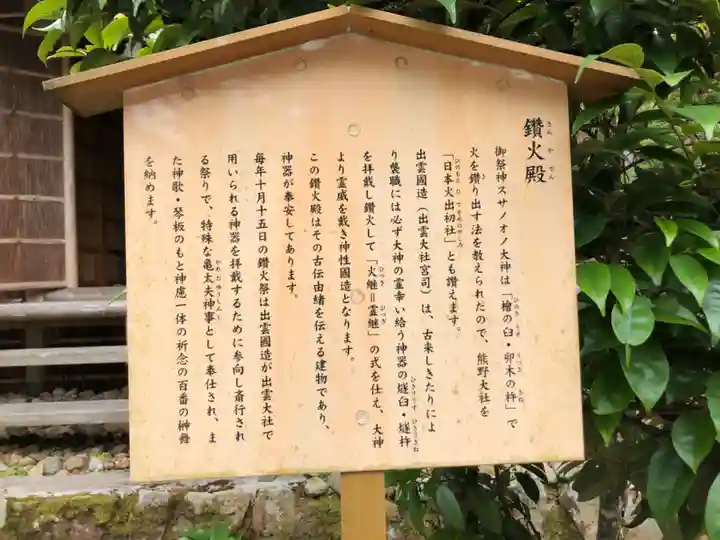 鑽火殿
さんかでん
御祭神スサノオノ大神は「檜の臼・卯木の杵」で
ひのきうす
うつぎきね
火を鑽り出す法を教えられたので、熊野大社を
き
「日本火出初社」とも讃えます。
ひのもとひでぞめのやしろ
出雲國造（出雲大社宮司）は、古来しきたりによ
り襲職には必ず大神の霊幸い給う神器の燧臼・燧杵
ひきりうす
ひきりきね
を拝戴し鑽火して「火継＝霊継」の式を仕え、大神
ひつぎ
ひつぎ
より霊威を戴き神性國造となります。
この鑽火殿はその古伝由緒を伝える建物であり、
神器が奉安してあります。
毎年十月十五日の鑽火祭は出雲國造が出雲大社で
用いられる神器を拝戴するために参向し斎行され
る祭りで、特殊な亀太夫神事として奉仕され、ま
かめだゆうしんじ
た神歌・琴板のもと神慮一体の祈念の百番の神舞
を納めます。